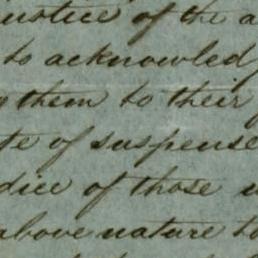 notice of the a
to acknowled
them to their
te of suspense
dice of those
above nature to